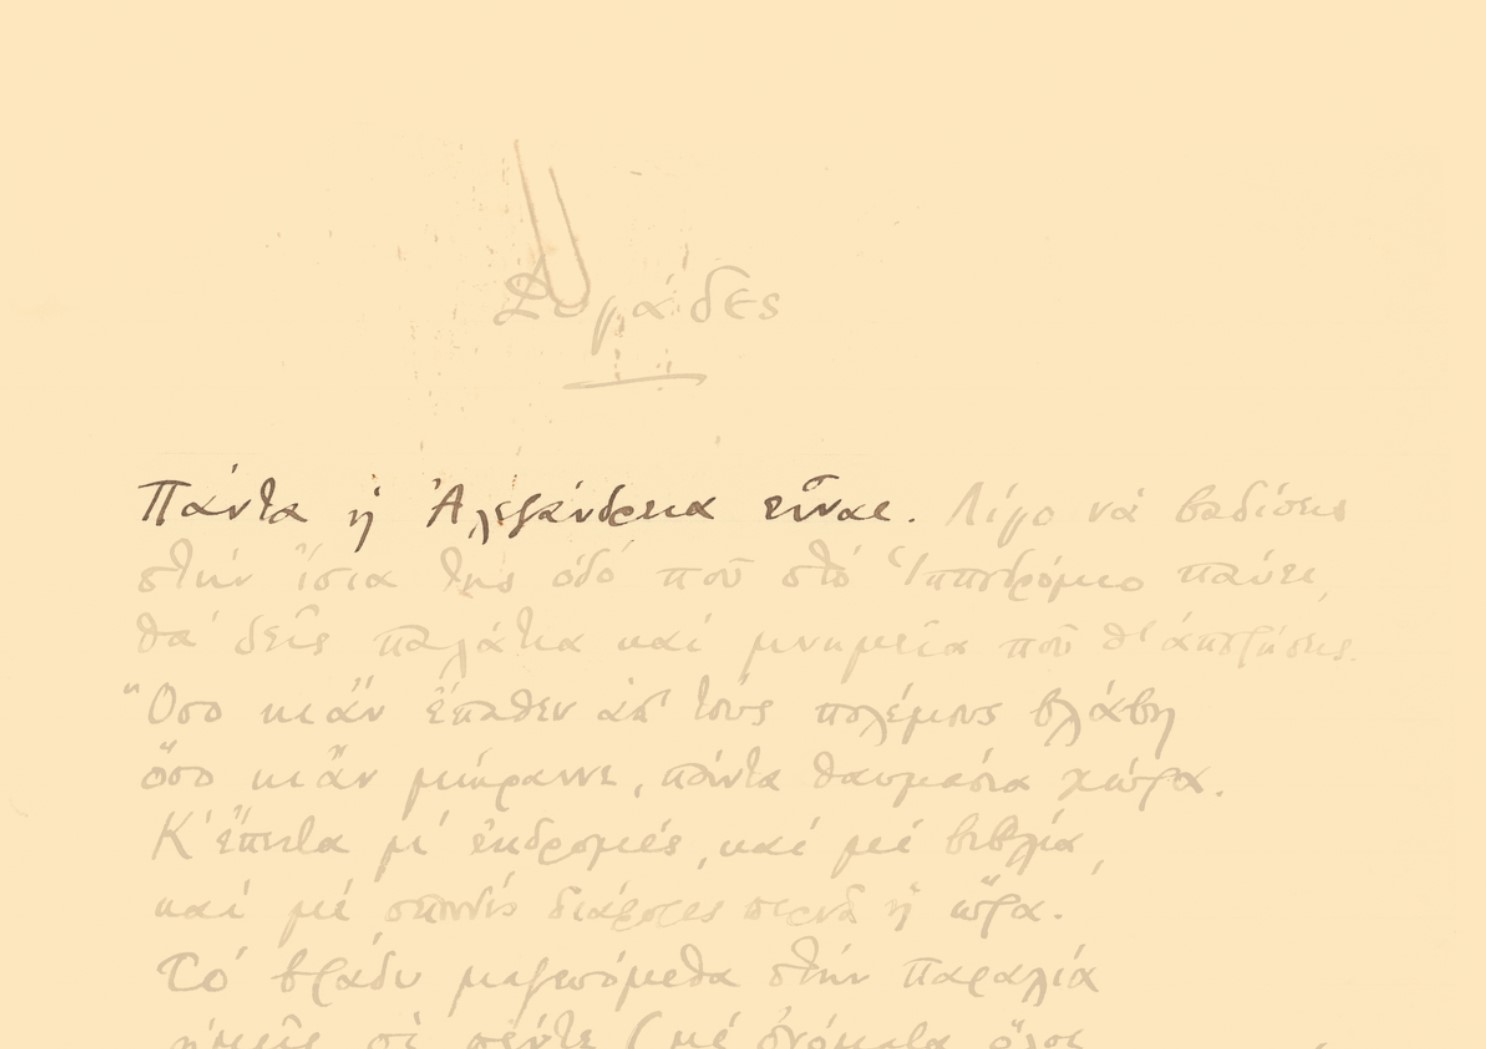 Φυγάδες
Πάντα ἡ Ἀλεξάνδρεια εἶναι. Λίγο νά βαδίσεις
στήν ἴσια της ὁδό ποῦ στό Ἱπποδρόμιο παύει,
θά δεῖς παλάτια καί μνημεῖα ποῦ θ' ἀπορήσεις.
Ὅσο κι ἄν ἔπαθεν ἀπ' τούς πολέμους βλάβη
ὅσο κι ἄν μίκραινε, πάντα θαυμάσια χώρα.
Κ' ἔπειτα μ' ἐκδρομές, καί μέ βιβλία,
καί μέ σπουδές διάφορες περνᾶ ἡ ὥρα.
Τό βράδυ μαζευόμεθα στήν παραλία
ἡμεῖς οἱ πέντε (μέ ὀνόματα ὅλοι